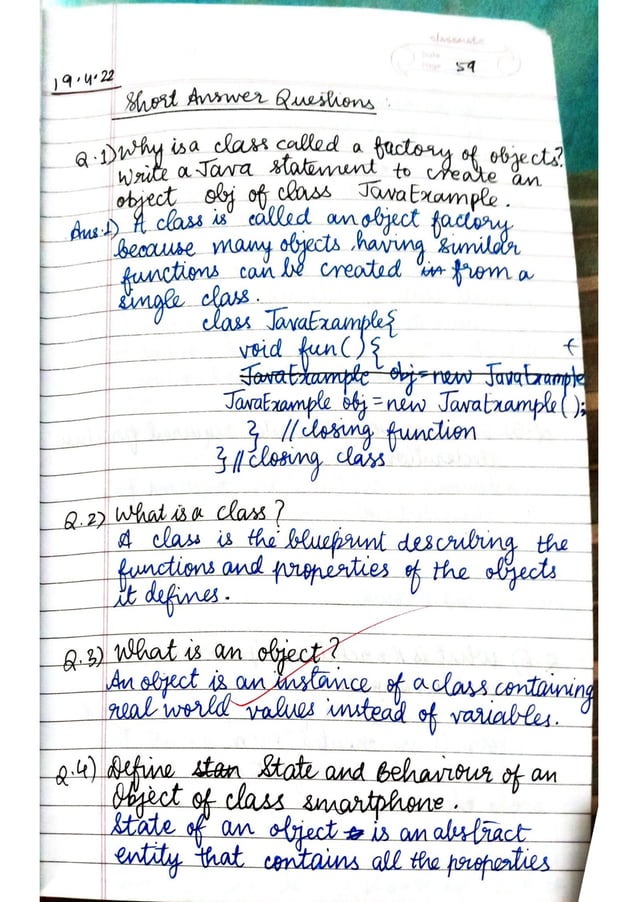 classmate
Date
Page 59
19.4.22
Short Answer Questions :
Q.1) Why is a class called a factory of objects?
Write a Java statement to create an
object obj of class JavaExample.
Ans.1) A class is called an object factory
because many objects having similar
functions can be created in from a
single class.
class JavaExample{
void fun(){
JavaExample obj=new JavaExample
JavaExample obj = new JavaExample();
} //closing function
} //closing class
Q.2) What is a class?
A class is the blueprint describing the
functions and properties of the objects
it defines.
Q.3) What is an object?
An object is an instance of a class containing
real world values instead of variables.
Q.4) Define stan State and Behaviour of an
Object of class smartphone.
State of an object is an abstract
entity that contains all the properties